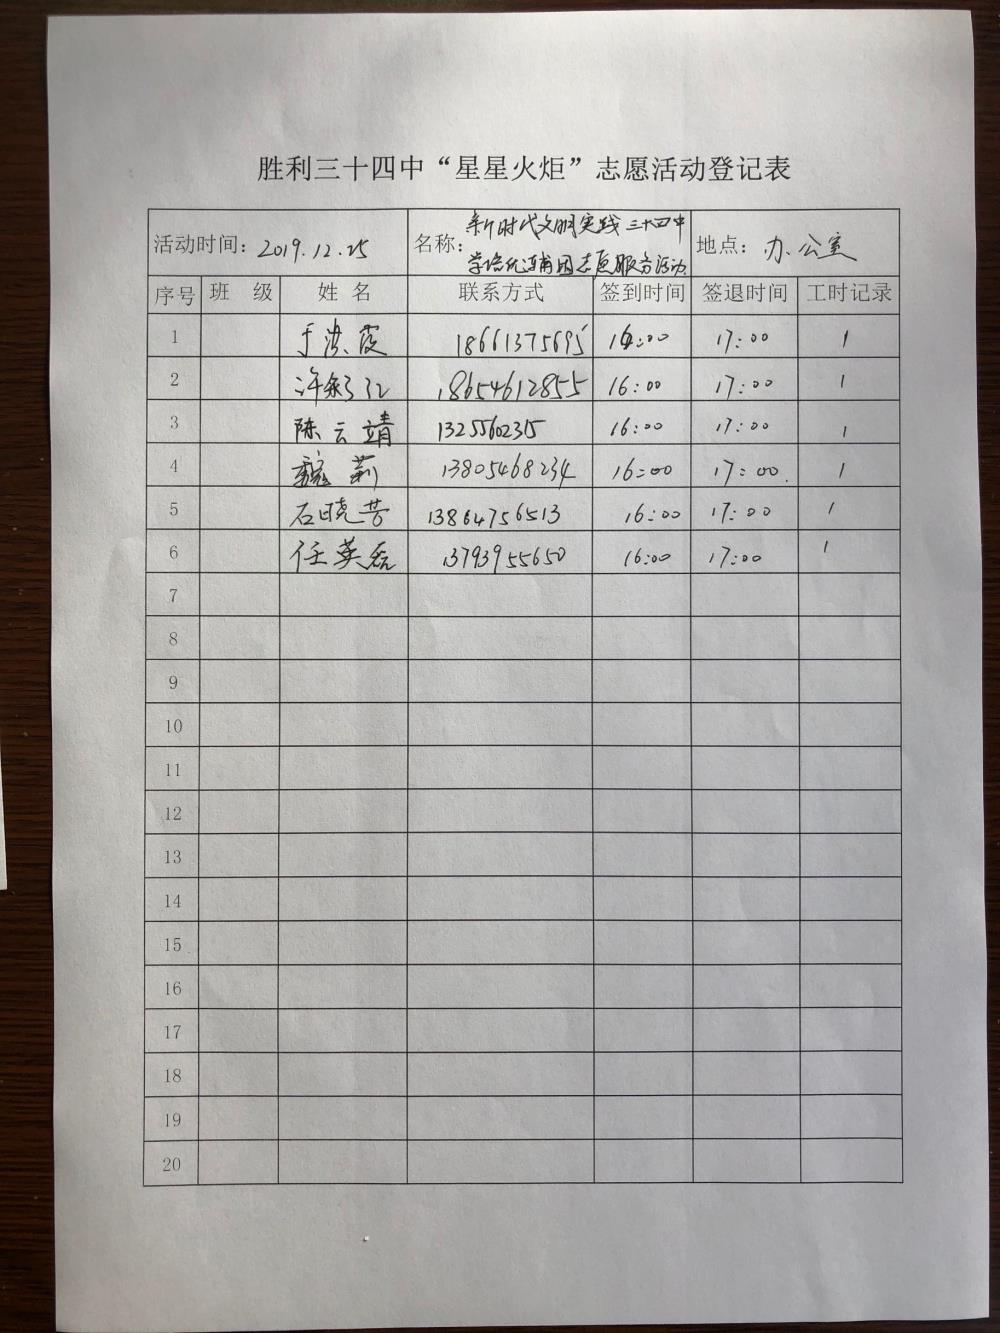 胜利三十四中“星星火炬”志愿活动登记表
活动时间：2019.12.25 名称：新时代文明实践三十四中 地点：办公室
学培优辅困志愿服务活动
序号 班 级 姓 名 联系方式 签到时间 签退时间 工时记录
1 于洪霞 18661375695 16:00 17:00 1
2 许 18654612855 16:00 17:00 1
3 陈云靖 13255602315 16:00 17:00 1
4 莉 13805468234 16:00 17:00 1
5 石晓芳 13864756513 16:00 17:00 1
6 任英磊 13793955650 16:00 17:00 1
7
8
9
10
11
12
13
14
15
16
17
18
19
20